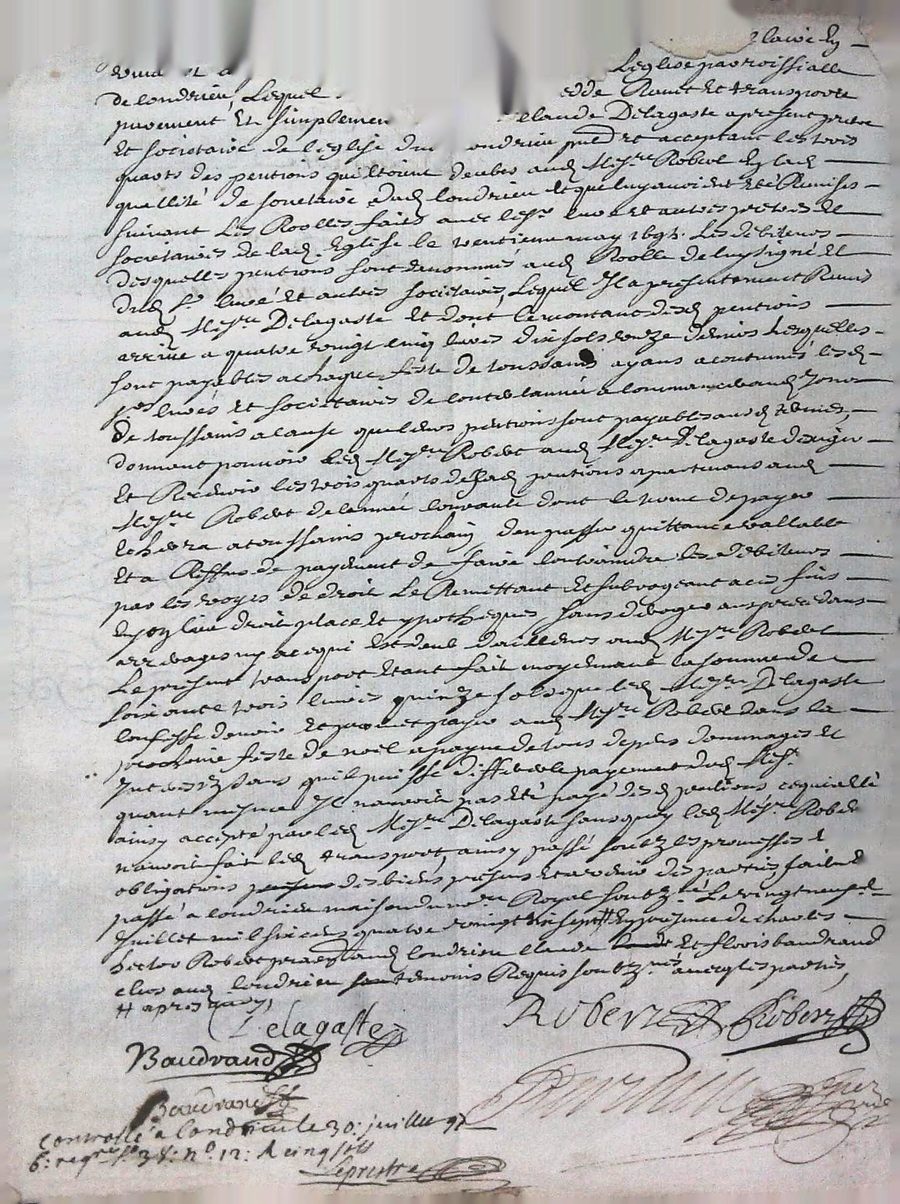 Leglise parroissialle
de Condrieu, Lequel Remet et transporte
purement, Et simplement Claude Delagaste apresent pretre
Et societaire de leglise dud Condrieu pnt Et acceptant les trois
quarts des pentions quil toient deubes aud Messre Robert En lad
quallité de socetaire dud Condrieu Et que luy avoient Eté Remises
suivant Les Roolles faits avec les Srs Curé et autres pretres Et
societaires de lad Eglise le ventieme may 1697. Les debiteurs
desquelles pentions sont denommés aud Roolle de luy signé Et
dud Sr Curé Et autres societaires, Lequel Il a presentement Remis
aud Messre Delagaste Et dont le montant desd pentions
arrive a quatre vingt cinq livres dix sols onze deniers Lesquelles
sont payables a chaque feste de toussains ayans acoutumés lesd
Srs Curés Et societaires de conter lannée a commancer aud Jour
de toussains a cause que leurs pentions sont payables aud terme,
donnant pouvoir led Messre Robert aud Messre Delagaste dexiger
Et Recevoir les trois quarts desd pentions apartenans aud
Messre Robert de lannée courante dont le terme de payer
Echerra a toussains prochain den passer quittance vallable
Et a Reffus de payement de faire contraindre les debiteurs
par les voyes de droit Le Remettant Et subrogeant a ces fins
En son lieu droit place et ypotheques sans deroger aus precedans
arrerages ny a ce qui Est deub dailleurs aud Messre Robert
Le present transport Etant fait moyennant la somme de
soixante trois livres quinze sols que led Messre Delagaste
confesse devoir Et promet payer aud Messre Robert dans la
prochaine feste de noel a payne de tous depens dommages Et
Interets sans quil puisse differer le payement dud Messr
quant mesme Il nauroit pas Eté payé desd pentions ce qui a Eté
ainsy accepté par led Messre Delagaste sans quoy led Messre Robert
nauroit fait led transport, ainsy passé soubz les promesses
obligations des biens presens Et avenir des parties, fait et
passé a Condrieu maison du Royal soubz né Le vingt neuf
Juillet mil six cens quatre vingt dix sept En presence de charles
hector Robert praticien aud Condrieu Claude Et Floris baudrand
clerc aud Condrieu temoins Requis soubz nés avec les parties,
apres
Delagaste
Robert
CRobert
Baudrand
Baudrand
Controllé a Condrieu le 30: juillet 97
6: regre fo 34: no: 12: R cinq sols
Leprestre